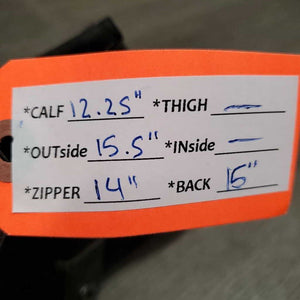 *CALF 12.25" *THIGH —
*OUTside 15.5" *INside —
*ZIPPER 14" *BACK 15"